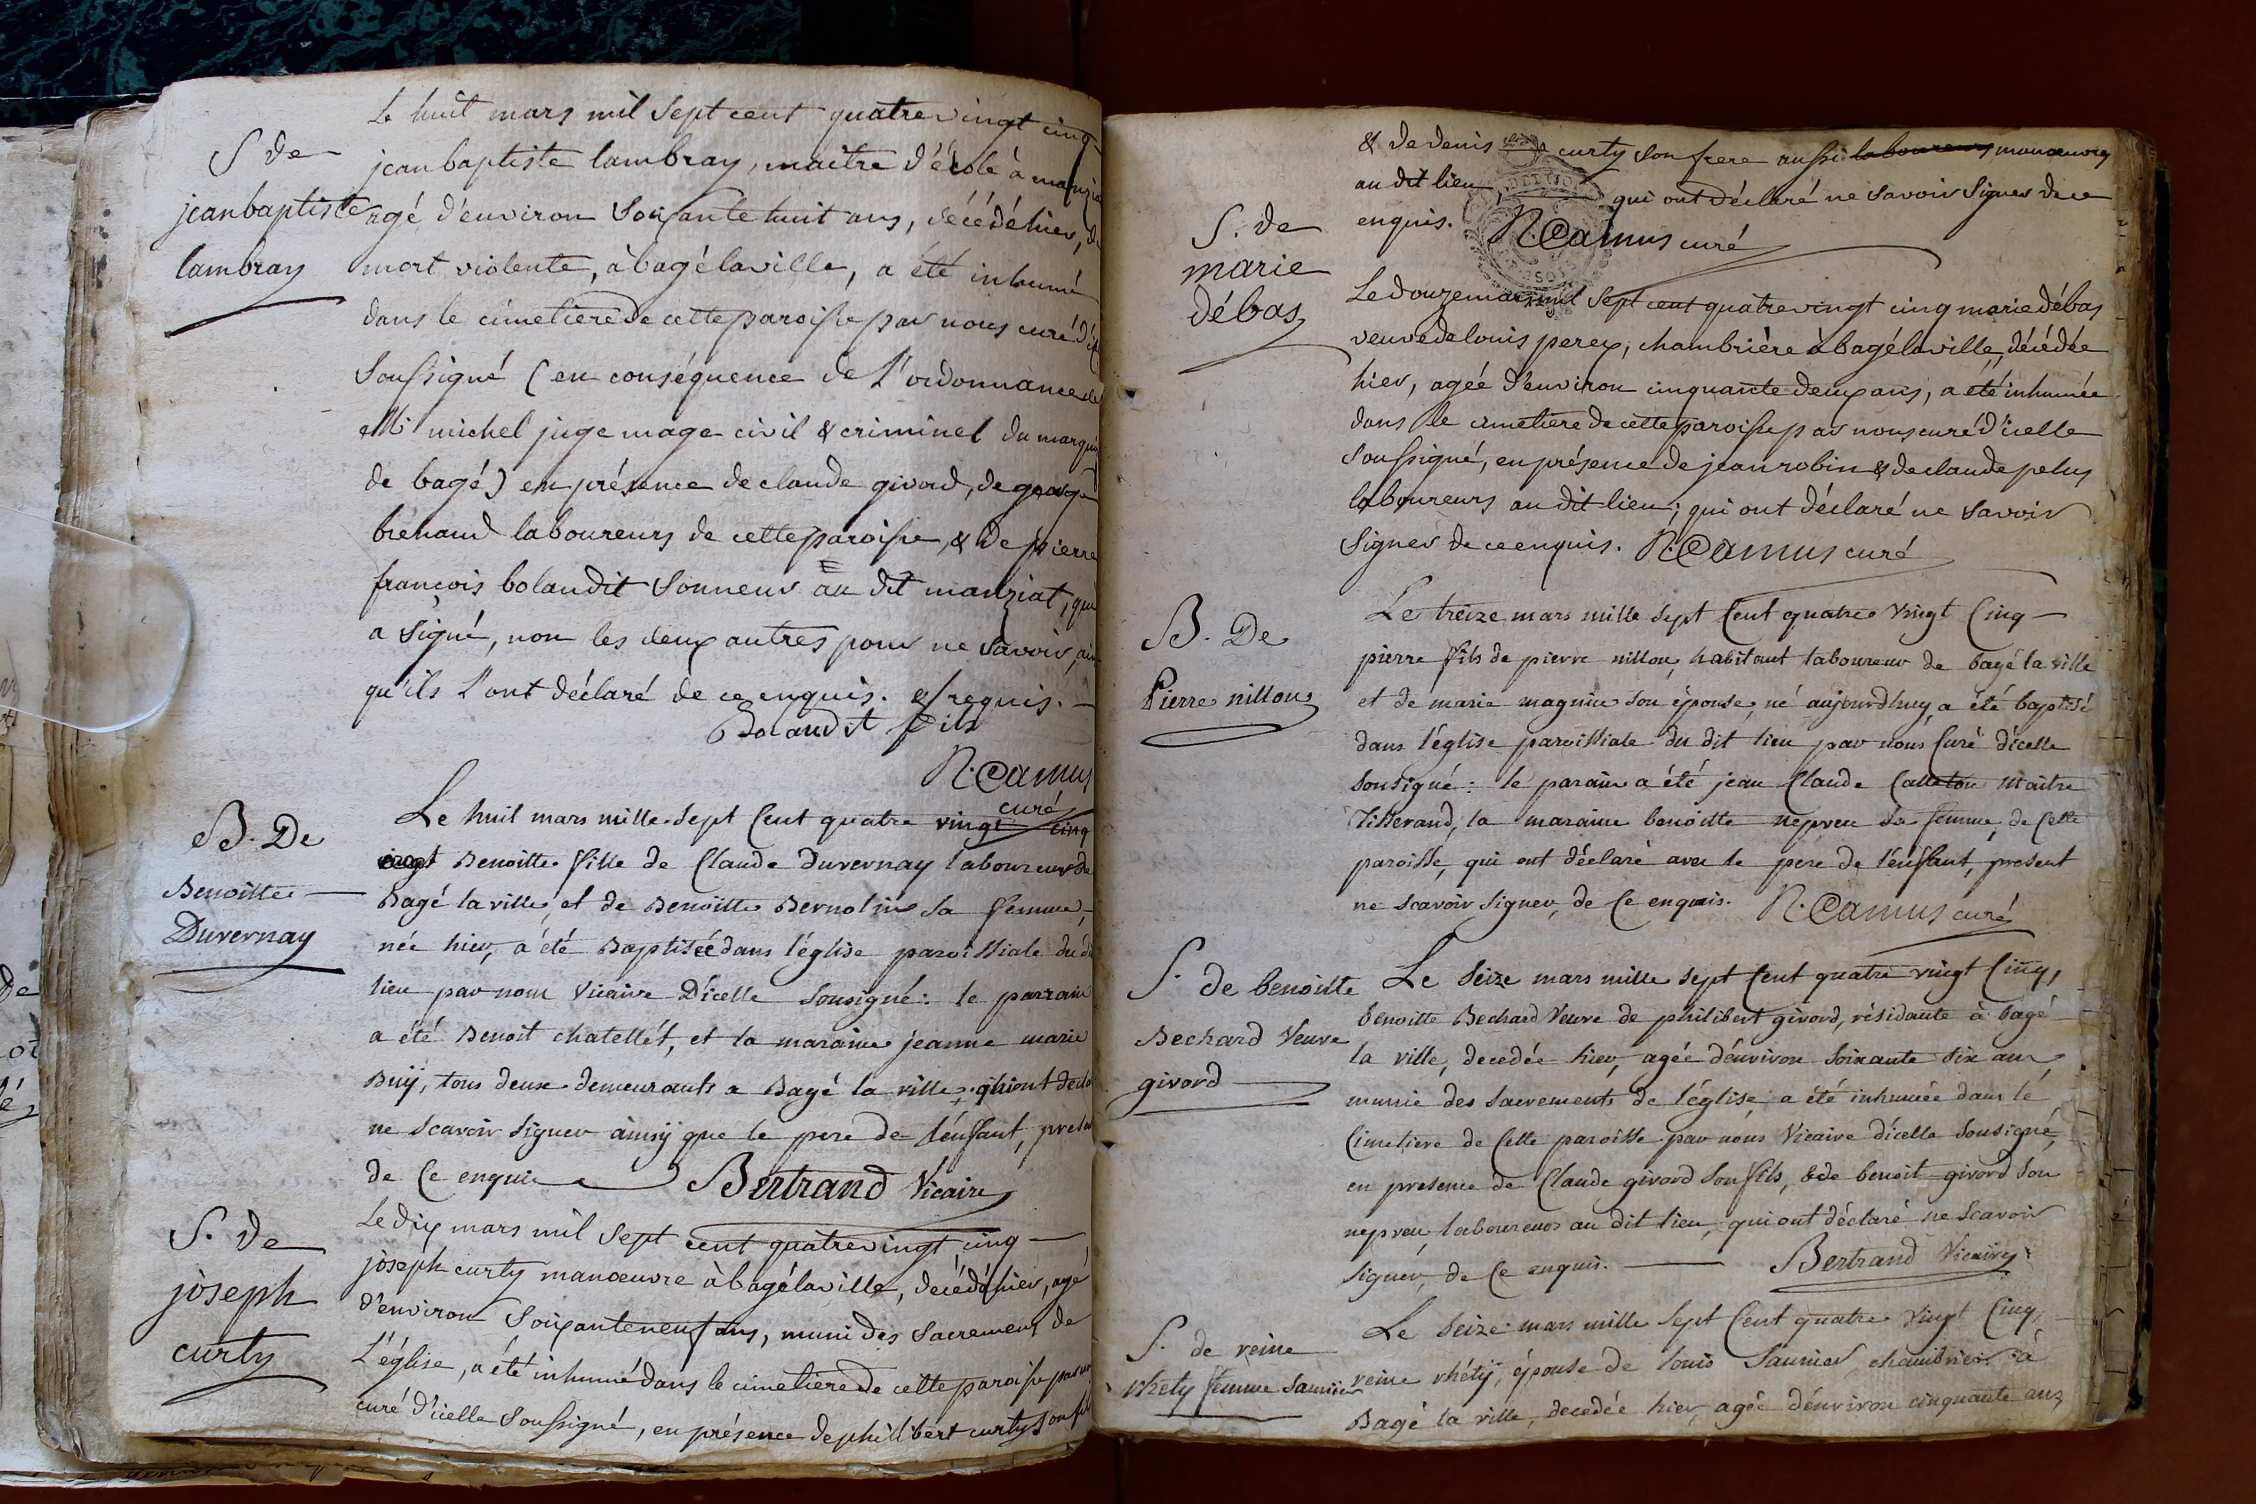 S de
jean baptiste
lambray
Le huit mars mil sept cent quatre vingt cinq
jean baptiste lambray, maitre d'école à manziat
agé d'environ soixante huit ans, décédé hier, de
mort violente, à bagé la ville, a été inhumé
dans le cimetiere de cette paroisse par nous curé d'i
soussigné (en conséquence de l'ordonnance de
Mr michel juge mage civil & criminel du marqui
de bagé) en présence de claude givord, de george
brenand laboureurs de cette paroisse, & de pierre
françois bolandit sonneur au dit manziat, qui
a signé, non les deux autres pour ne savoir, ain
qu'ils l'ont déclaré de ce enquis. & requis.
Bolandit fils
N. Camus
curé
B. De
Benoitte
Duvernay
Le huit mars mille sept Cent quatre vingt cinq
Benoitte fille de Claude Duvernay laboureur de
Bagé la ville, et de Benoitte Bernolin sa femme,
née hier, a été Baptisée dans l'église paroissiale du di
lieu par nous Vicaire D'icelle sousigné: le parrain
a été Benoit chatellét, et la maraine jeanne marie
Buij, tous deux demeurants a Bagé la ville, qui ont decla
ne scavoir signer ainsij que le pere de l'énfant, present
de Ce enquis Bertrand Vicaire
S. de
joseph
curty
Le dix mars mil sept cent quatre vingt cinq
joseph curty manœuvre à bagé la ville, décédé hier, agé
d'environ soixante neuf ans, muni des sacremens de
l'église, a été inhumé dans le cimetiere de cette paroisse par nous
curé d'icelle soussigné, en présence de philibert curty son fil
& de denis curty son frere aussi laboureurs manœuvres
au dit lieu, qui ont déclaré ne savoir signer de ce
enquis. N. Camus curé
S. de
marie
débas
Le douze mars mil sept cent quatre vingt cinq marie débas
veuve de louis perex, chambrière à bagé la ville, décédée
hier, agée d'environ cinquante deux ans, a été inhumée
dans le cimetiere de cette paroisse par nous curé d'icelle
soussigné, en présence de jean robin & de claude pelus
laboureurs au dit lieu; qui ont déclaré ne savoir
signer de ce enquis. N. Camus curé
B. De
Pierre nillon
Le treize mars mille sept Cent quatre vingt Cinq
pierre fils de pierre nillon, habitant laboureur de bagé la ville
et de marie magnin son épouse, né aujourd'huy, a été baptisé
dans l'église paroissiale du dit lieu par nous Curé d'icelle
sousigné: le parain a été jean Claude Catteton Maitre
Tisserand, la maraine benoitte nepveu sa femme, de Cette
paroisse, qui ont déclaré avec le pere de l'énfant, present
ne scavoir signer, de Ce enquis. N. Camus curé
S. de benoitte
Bechard Veuve
givord
Le seize mars mille sept Cent quatre vingt Cinq,
benoitte Bechard Veuve de philibert givord, résidante à bagé
la ville, decedée hier, agée d'énviron soixante dix ans,
munie des sacrements de l'église, a été inhumée dans le
Cimetiere de Cette paroisse par nous Vicaire d'icelle sousigné,
en presence de Claude givord son fils, & de benoit givord son
nepveu laboureurs au dit lieu, qui ont déclaré ne scavoir
signer, de Ce enquis. Bertrand Vicaire
S. de reine
rhety femme saunier
Le seize mars mille sept Cent quatre vingt Cinq,
reine rhétij, épouse de louis saunier, chambrier à
Bagé la ville, decedée hier, agée d'énviron cinquante ans